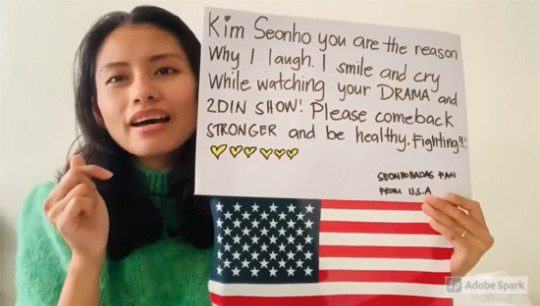 Kim Seonho you are the reason
Why I laugh. I smile and cry
While watching your DRAMA and
2DIN SHOW! Please comeback
STRONGER and be healthy. Fighting!!!
SEONHOHADAS FAN
FROM U.S.A
Sp Adobe Spark